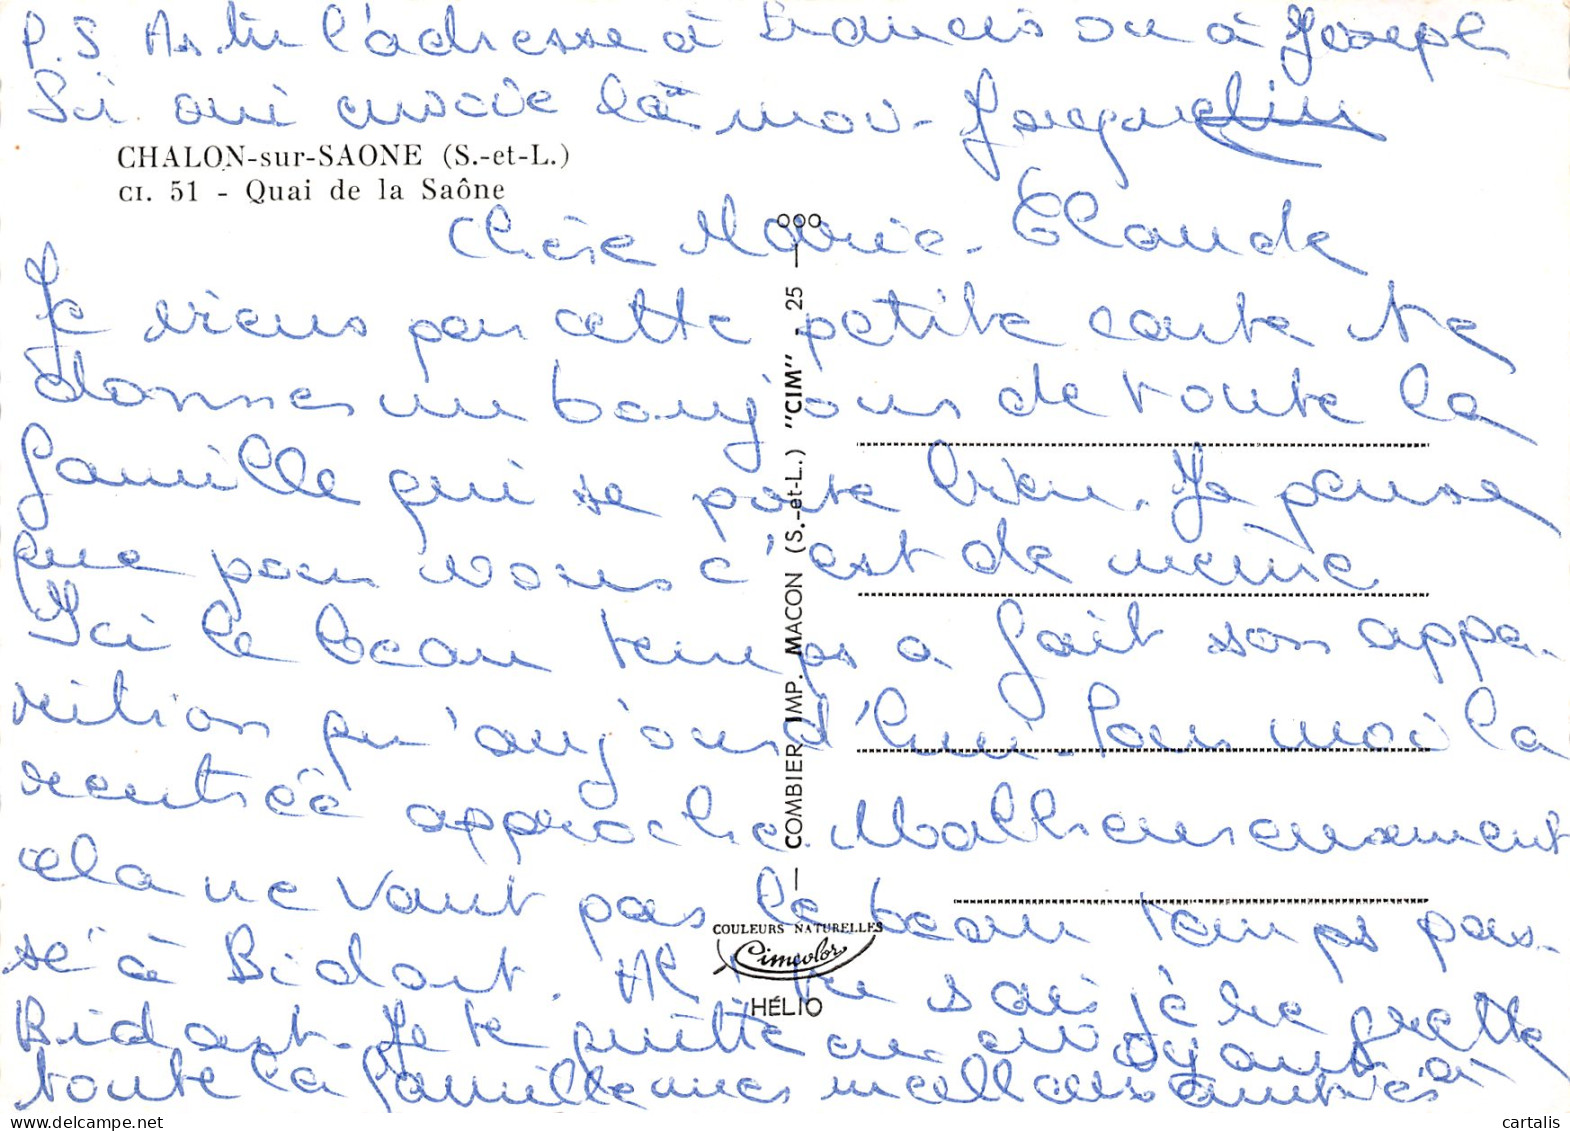 P.S As-tu l'adresse à Francis ou à Joseph
Si oui envoie la moi - Jacqueline
CHALON-sur-SAONE (S.-et-L.)
CI. 51 - Quai de la Saône
Chère Marie-Claude
Je viens par cette petite carte te
donner un bonjour de toute la
famille qui se porte bien. Je pense
que pour vous c'est de même
Ici le beau temps a fait son appa-
rition qu'aujourd'hui. Pour moi la
rentrée approche. Malheureusement
cela ne vaut pas le beau temps pas-
sé à Bidart. Ah! tu sais je regrette
Bidart. Je te quitte en envoyant à
toute la famille mes meilleures amitiés
COMBIER IMP. MACON (S.-et-L.) "CIM" - 25 -
COULEURS NATURELLES
Cimcolor
HÉLIO
cartalis